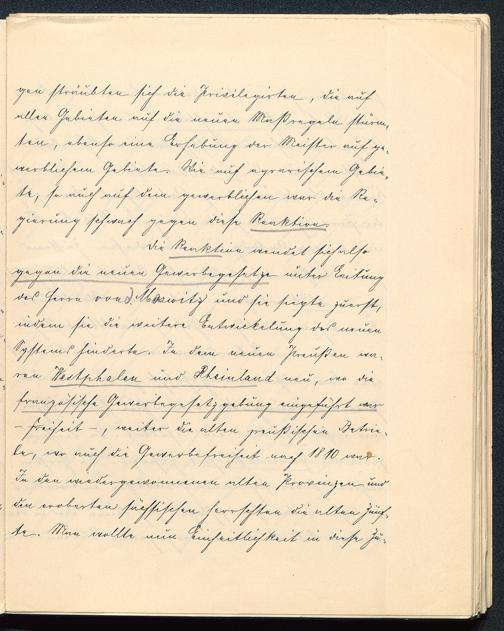 gen sträubten sich die Privilegirten, die auf
allen Gebieten auf die neuen Maßregeln stürm-
ten, ebenso eine Erhebung der Meister auf ge-
werblichem Gebiete. Wie auf agrarischem Gebie-
te, so auch auf dem gewerblichen war die Re-
gierung schwach gegen diese Reaktion.
Die Reaktion wendet sich also
gegen die neuen Gewerbegesetze unter Leitung
des Herrn von d. Marwitz und sie siegte zuerst,
indem sie die weitere Entwickelung des neuen
Systems hinderte. In dem neuen Preußen wa-
ren Westphalen und Rheinland neu, wo die
französische Gewerbegesetzgebung eingeführt war
- freiheit -, weiter die alten preußischen Betrie-
be, wo auch die Gewerbefreiheit nach 1810 war.
In den wiedergewonnenen alten Provinzen und
den eroberten sächsischen herrschten die alten Zünf-
te. Man wollte nun Einheitlichkeit in diese Zu-